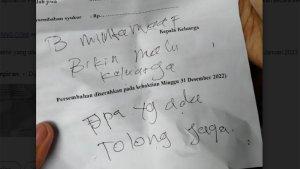 Persembahan syukur : Rp.
Kepala Keluarga
3 mintamaaf
Bikin malu
keluarga
Persembahan diserahkan pada kebaktian Minggu 31 Desember 2022)
Apa yg ada
Tolong jaga